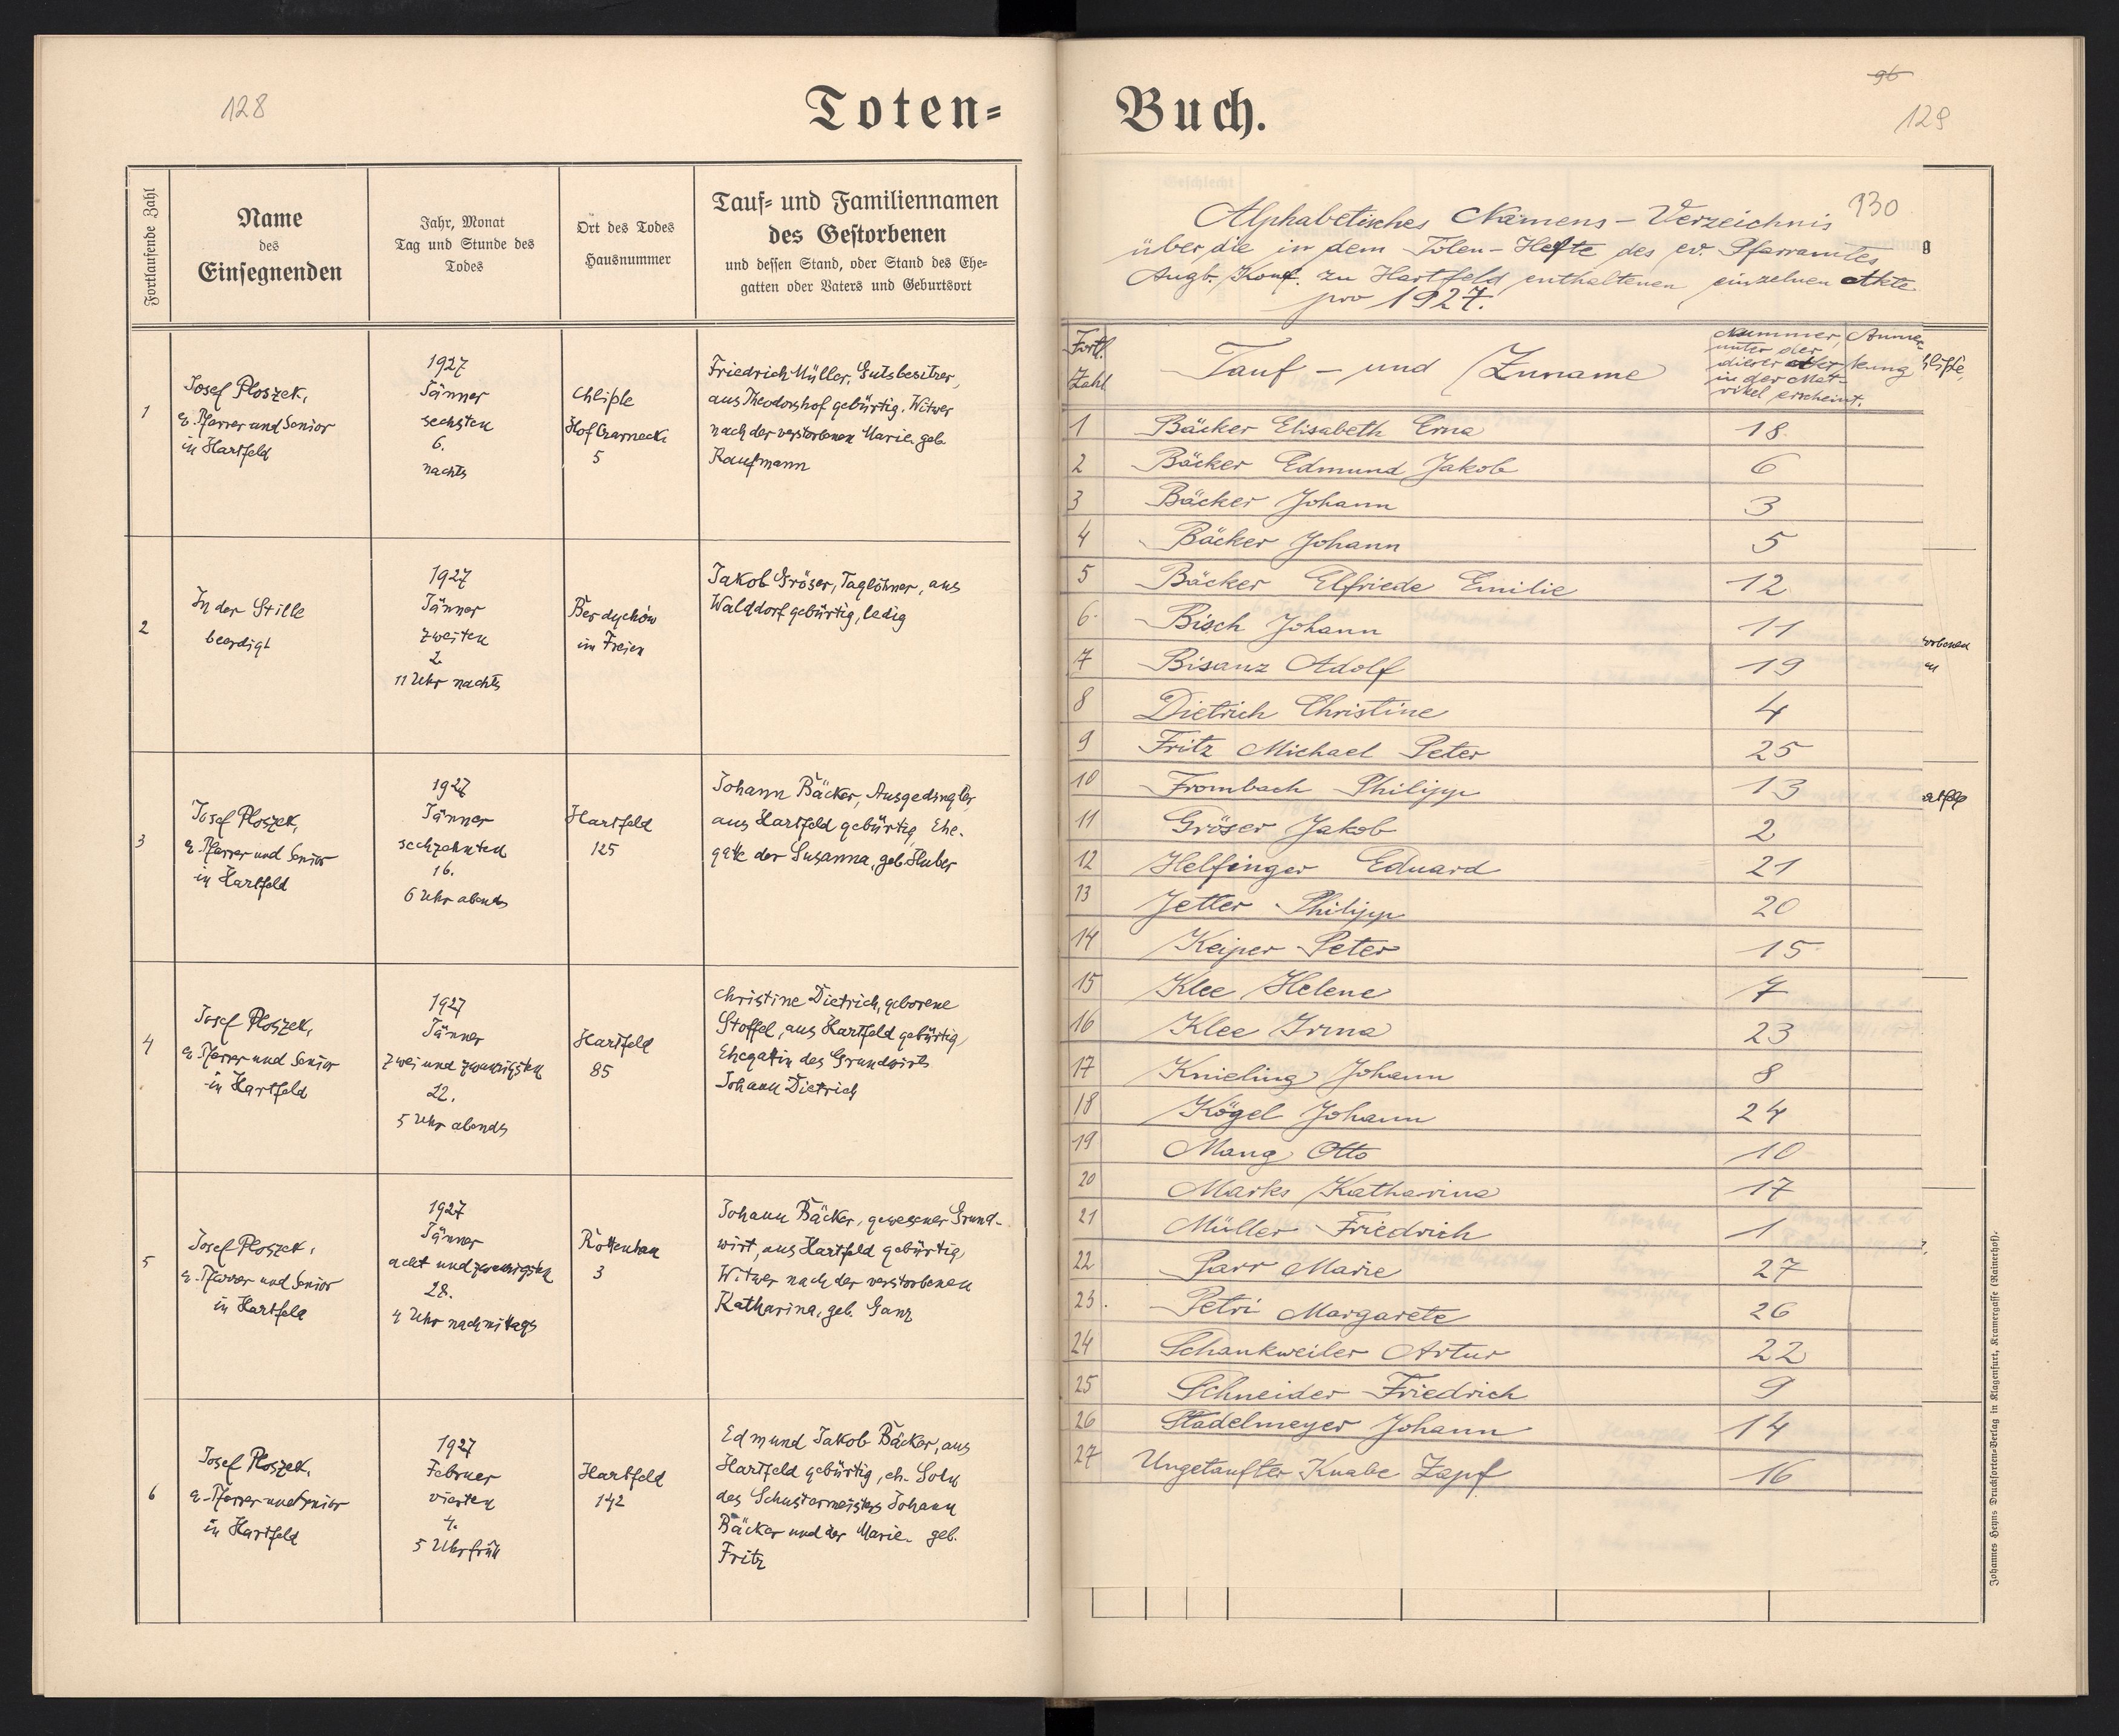 128
Toten=
Fortlaufende Zahl
Name
des
Einsegnenden
Jahr, Monat
Tag und Stunde des
Todes
Ort des Todes
Hausnummer
Tauf= und Familiennamen
des Gestorbenen
und dessen Stand, oder Stand des Ehe=
gatten oder Vaters und Geburtsort
1
Josef Ploszek,
ev. Pfarrer und Senior
in Hartfeld
1927
Jänner
sechsten
6.
nachts
Chliple
Hof Czarnecki
5
Friedrich Müller, Gutsbesitzer,
aus Theodorshof gebürtig, Witwer
nach der verstorbenen Marie geb.
Kaufmann
2
In der Stille
beerdigt
1927
Jänner
zweiten
2.
11 Uhr nachts
Berdychów
im Freien
Jakob Gröser, Taglöhner, aus
Walddorf gebürtig, ledig
3
Josef Ploszek,
ev. Pfarrer und Senior
in Hartfeld
1927
Jänner
sechzehnten
16.
6 Uhr abends
Hartfeld
125
Johann Bäcker, Ausgedingler,
aus Hartfeld gebürtig, Ehe-
gatte der Susanna, geb. Huber
4
Josef Ploszek,
ev. Pfarrer und Senior
in Hartfeld
1927
Jänner
zwei und zwanzigsten
22.
5 Uhr abends
Hartfeld
85
Christine Dietrich, geborene
Stoffel, aus Hartfeld gebürtig,
Ehegattin des Grundwirts
Johann Dietrich
5
Josef Ploszek,
ev. Pfarrer und Senior
in Hartfeld
1927
Jänner
acht und zwanzigsten
28.
4 Uhr nachmittags
Rottenhan
3
Johann Bäcker, gewesener Grund-
wirt, aus Hartfeld gebürtig,
Witwer nach der verstorbenen
Katharina, geb. Ganz
6
Josef Ploszek,
ev. Pfarrer und Senior
in Hartfeld
1927
Februer
vierten
4.
5 Uhr früh
Hartfeld
142
Edmund Jakob Bäcker, aus
Hartfeld gebürtig, eh. Sohn
des Schustermeisters Johann
Bäcker und der Marie geb.
Fritz
96
129
Buch.
130
Alphabetisches Namens-Verzeichnis
über die in dem Toten-Hefte des ev. Pfarramtes
Augb. Konf. zu Hartfeld enthaltenen einzelnen Akte
pro 1927.
Fortl. Zahl
Tauf- und Zuname
Nummer,
unter der
dieser Akt
in der Mat-
rikel erscheint.
Anmer-
kung
1 Bäcker Elisabeth Erna 18
2 Bäcker Edmund Jakob 6
3 Bäcker Johann 3
4 Bäcker Johann 5
5 Bäcker Elfriede Emilie 12
6 Bisch Johann 11
7 Bisanz Adolf 19
8 Dietrich Christine 4
9 Fritz Michael Peter 25
10 Frombach Philipp 13
11 Gröser Jakob 2
12 Helfinger Eduard 21
13 Jetter Philipp 20
14 Keiper Peter 15
15 Klee Helene 7
16 Klee Irma 23
17 Knieling Johann 8
18 Kögel Johann 24
19 Mang Otto 10
20 Marks Katharina 17
21 Müller Friedrich 1
22 Parr Marie 27
23. Petri Margarete 26
24 Schankweiler Artur 22
25 Schneider Friedrich 9
26 Stadelmeyer Johann 14
27 Ungetaufter Knabe Zapf 16
Johannes Heyns Drucksorten=Verlag in Klagenfurt, Kramergasse (Rainerhof).